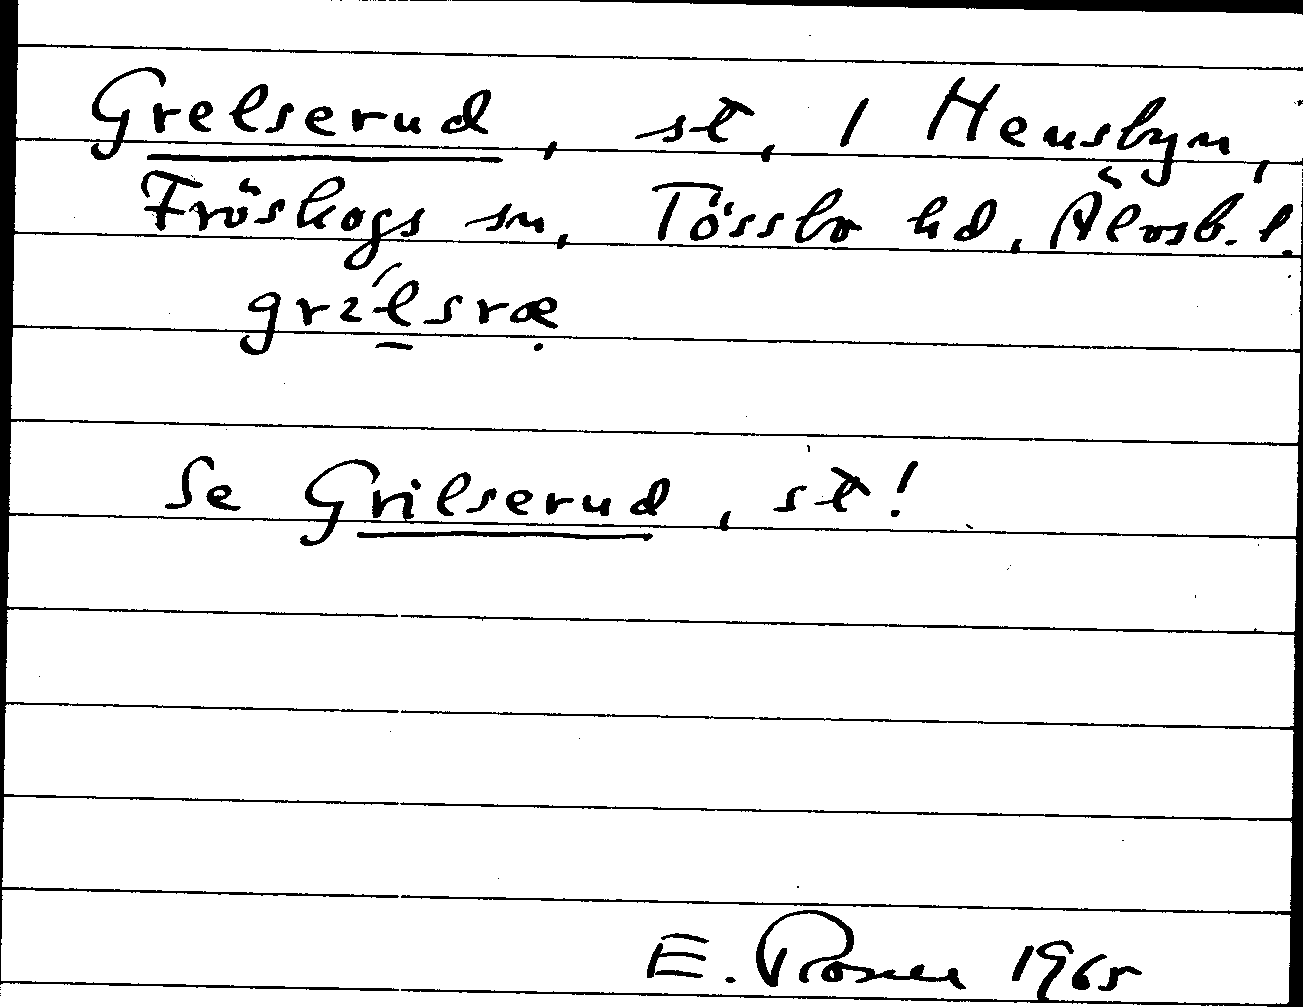 Grelserud, st, 1 Hensbyn,
Fröskogs sn, Tössbo hd, Älvsb. l.
Se Grilserud, st!
E. Rosell 1965